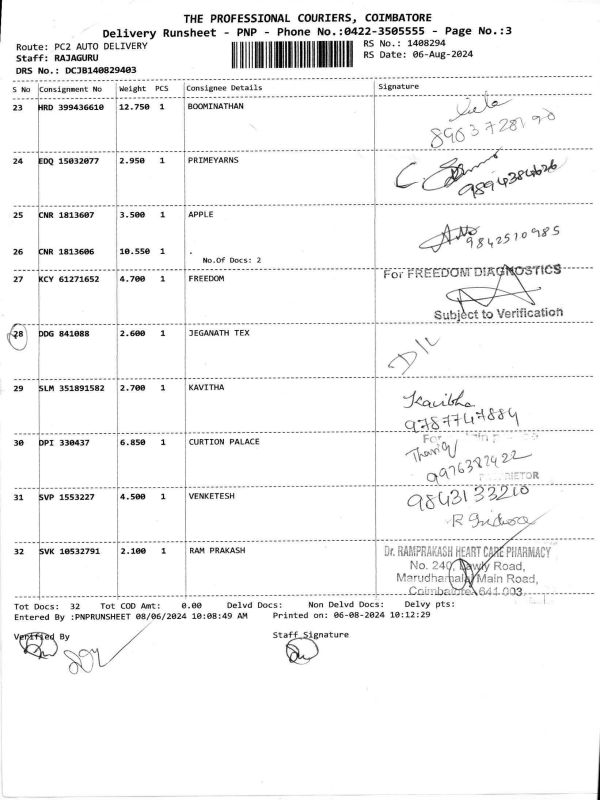 THE PROFESSIONAL COURIERS, COIMBATORE
Delivery Runsheet - PNP - Phone No.:0422-3505555 - Page No.:3
Route: PC2 AUTO DELIVERY RS No.: 1408294
Staff: RAJAGURU RS Date: 06-Aug-2024
DRS No.: DCJB140829403
S No Consignment No Weight PCS Consignee Details Signature
23 HRD 399436610 12.750 1 BOOMINATHAN
8903728190
24 EDQ 15032077 2.950 1 PRIMEYARNS
9894384626
25 CNR 1813607 3.500 1 APPLE
9842510985
26 CNR 1813606 10.550 1 .
No.Of Docs: 2
27 KCY 61271652 4.700 1 FREEDOM
For FREEDOM DIAGNOSTICS
Subject to Verification
28 DDG 841088 2.600 1 JEGANATH TEX
D/L
29 SLM 351891582 2.700 1 KAVITHA
Kavitha
9787747884
30 DPI 330437 6.850 1 CURTION PALACE
For
9976382422
31 SVP 1553227 4.500 1 VENKETESH
9843133210
32 SVK 10532791 2.100 1 RAM PRAKASH
Dr. RAMPRAKASH HEART CARE PHARMACY
No. 240, Lawly Road,
Marudhamalai Main Road,
Coimbatore-641 003.
Tot Docs: 32 Tot COD Amt: 0.00 Delvd Docs: Non Delvd Docs: Delvy pts:
Entered By :PNPRUNSHEET 08/06/2024 10:08:49 AM Printed on: 06-08-2024 10:12:29
Verified By Staff Signature